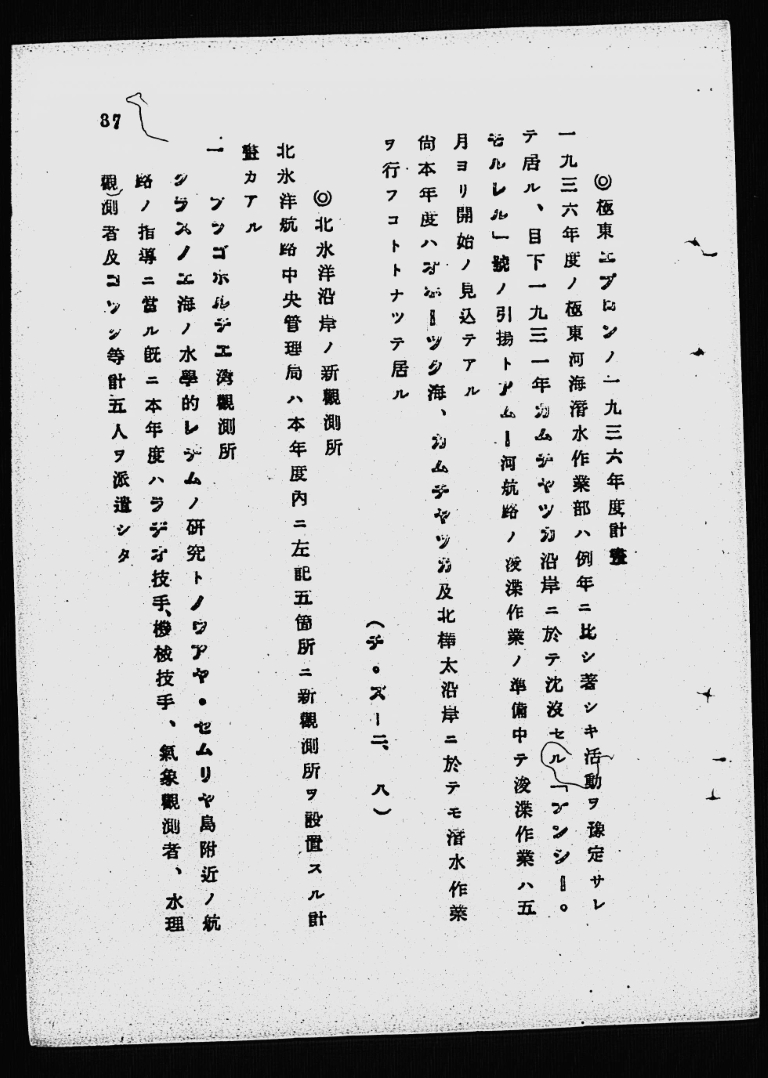 ◎極東エプロンノ一九三六年度計畫
一九三六年度ノ極東河海潛水作業部ハ例年ニ比シ著シキ活動ヲ豫定サレ
テ居ル、目下一九三一年カムチヤツカ沿岸ニ於テ沈沒セル「アンシー。
モルレル」號ノ引揚トアムー河航路ノ浚渫作業ノ準備中テ浚渫作業ハ五
月ヨリ開始ノ見込テアル
尙本年度ハオホーツク海、カムチヤツカ及北樺太沿岸ニ於テモ潛水作業
ヲ行フコトトナツテ居ル
(チ。ズー二、八)
◎北氷洋沿岸ノ新觀測所
北氷洋航路中央管理局ハ本年度內ニ左記五箇所ニ新觀測所ヲ設置スル計
畫カアル
一 ブラゴポルチエ灣觀測所
クラスノエ海ノ水學的レヂムノ硏究トノウアヤ・セムリヤ島附近ノ航
路ノ指導ニ當ル旣ニ本年度ハラヂオ技手、機械技手、氣象觀測者、水理
觀測者及コツク等計五人ヲ派遣シタ
87